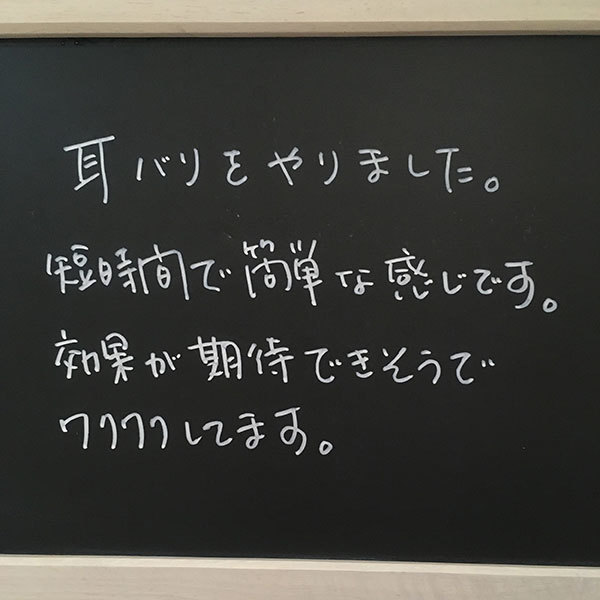 耳バリをやりました。
短時間で簡単な感じです。
効果が期待できそうで
ワクワクしてます。